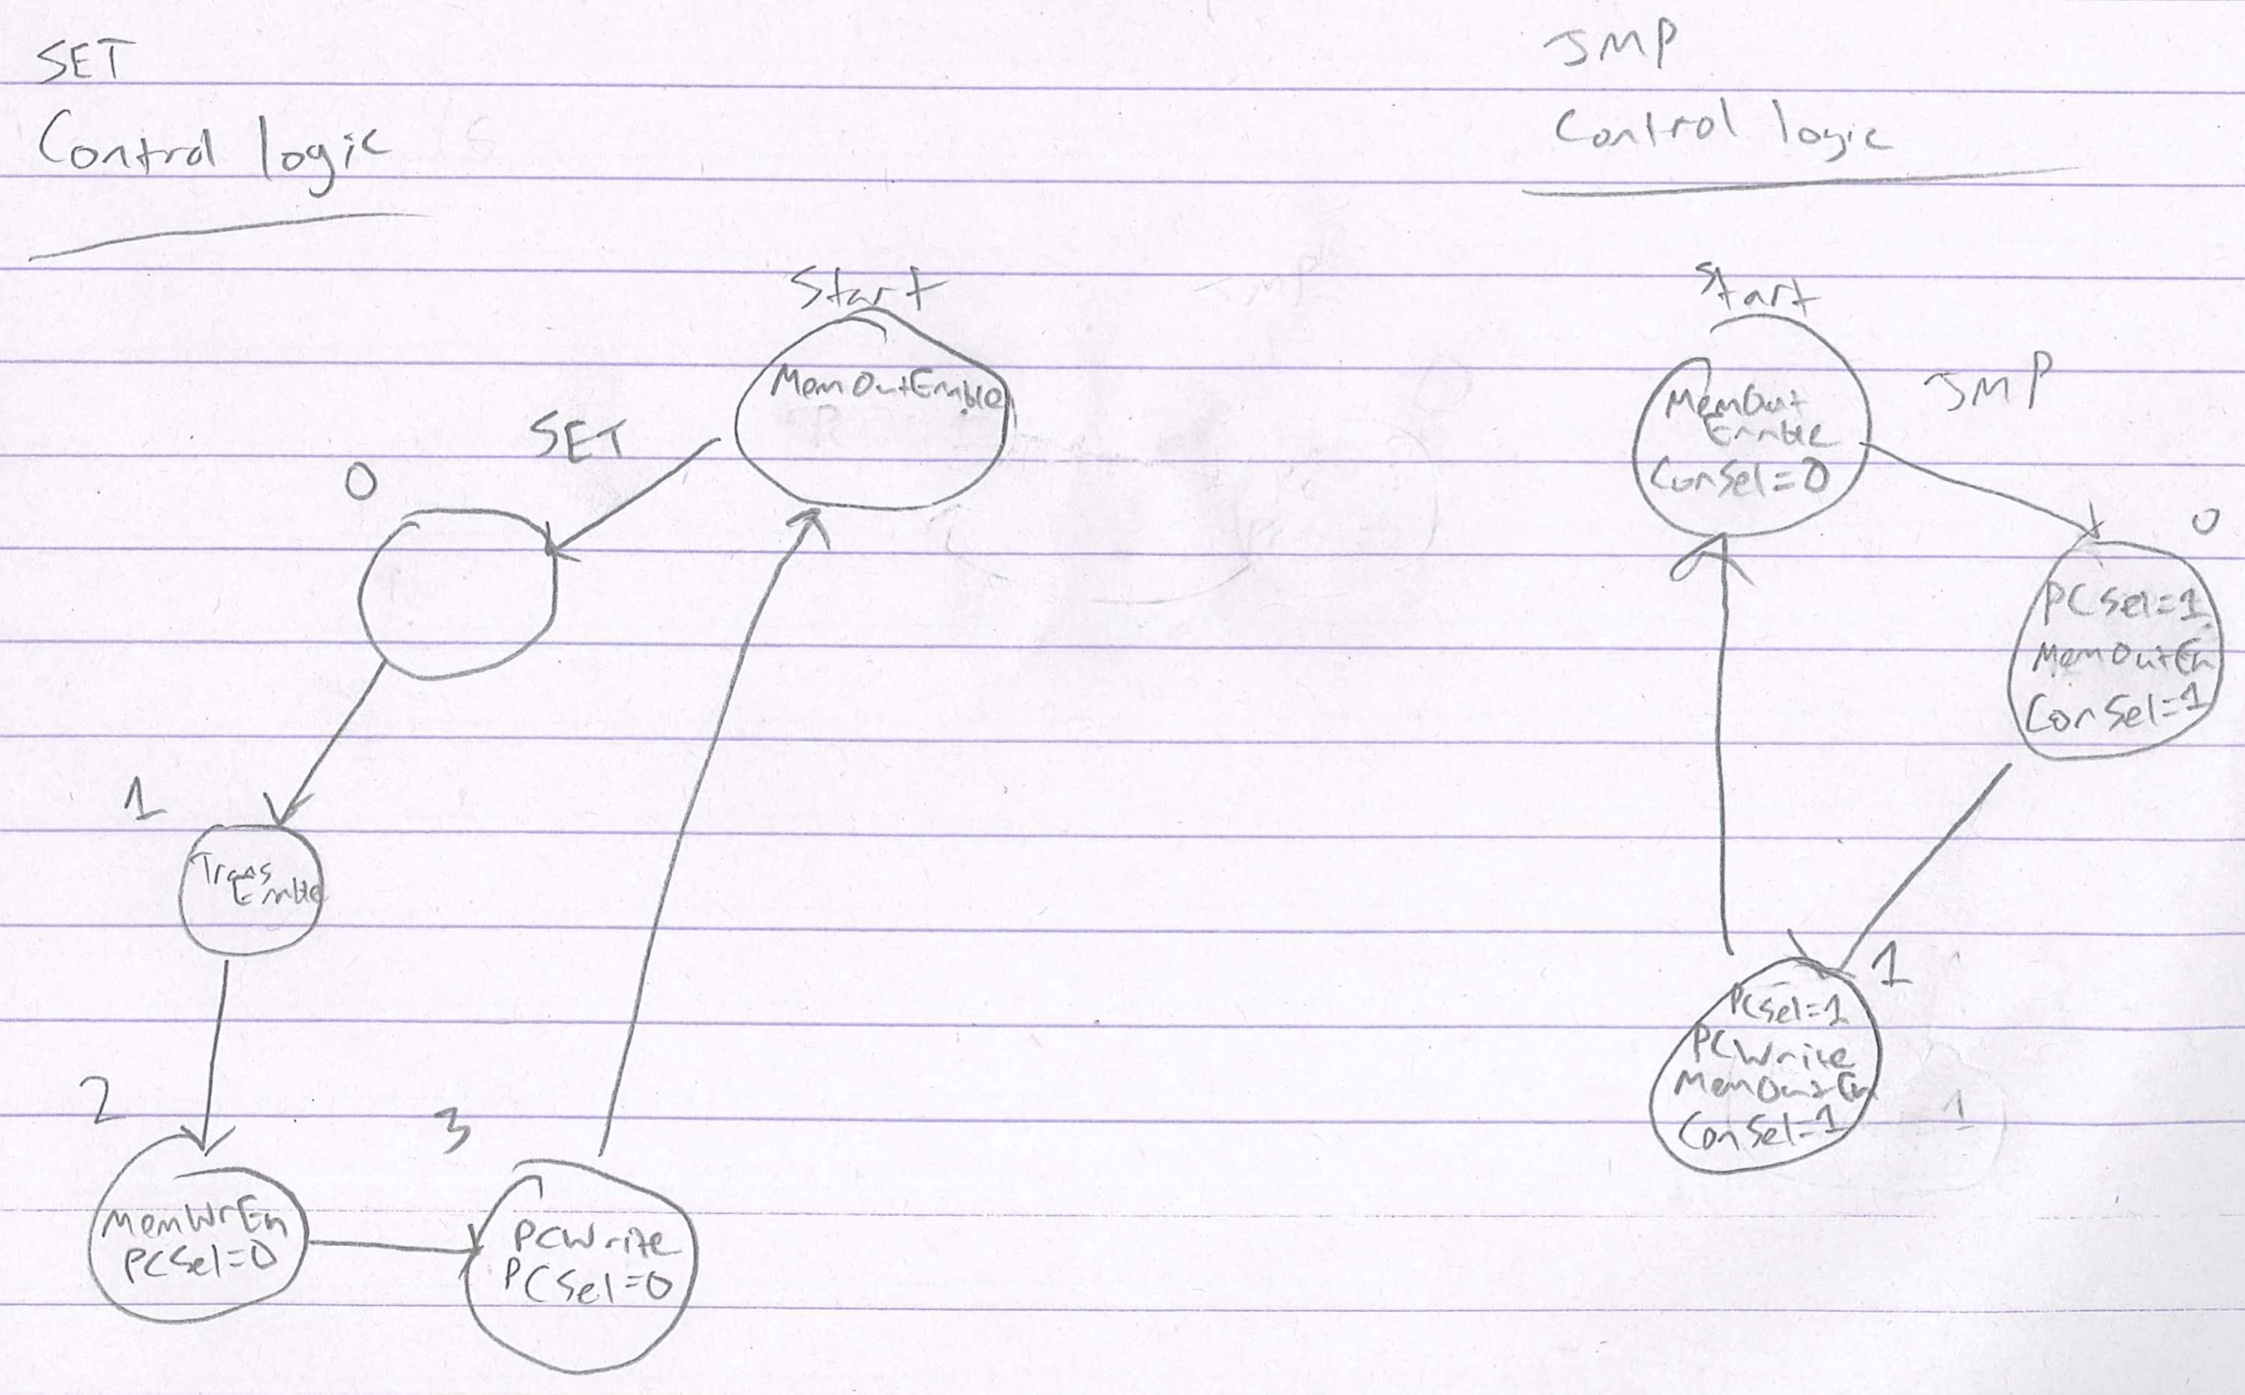 SET
Control logic
Start
MemOutEnable
SET
0
1
Trans
Enable
2
MemWrEn
PCSel=0
3
PCWrite
PCSel=0
JMP
Control logic
Start
MemOut
Enable
ConSel=0
JMP
0
PCSel=1
MemOutEn
ConSel=1
1
PCSel=1
PCWrite
MemOutEn
ConSel=1
1